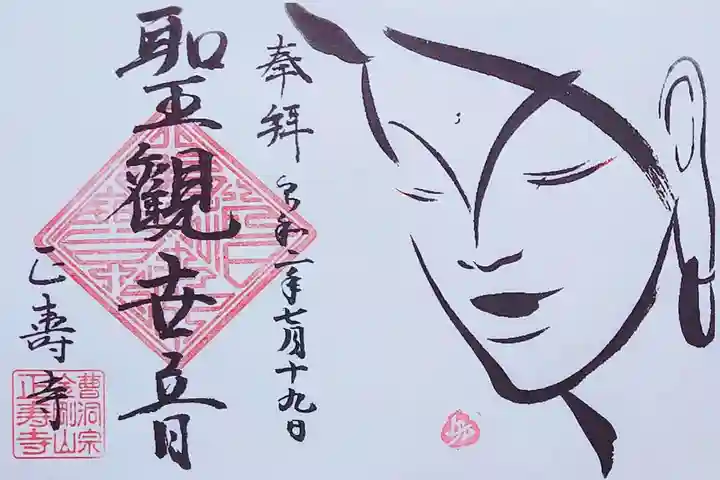 奉拝
令和二年七月十九日
聖観世音
正壽寺
曹洞宗
金剛山
正寿寺